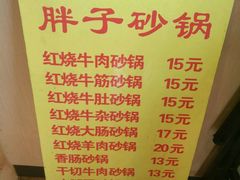 胖子砂锅
红烧牛肉砂锅 15元
红烧牛筋砂锅 15元
红烧牛肚砂锅 15元
红烧牛杂砂锅 15元
红烧大肠砂锅 17元
红烧羊肉砂锅 20元
香肠砂锅 13元
干切牛肉砂锅 13元